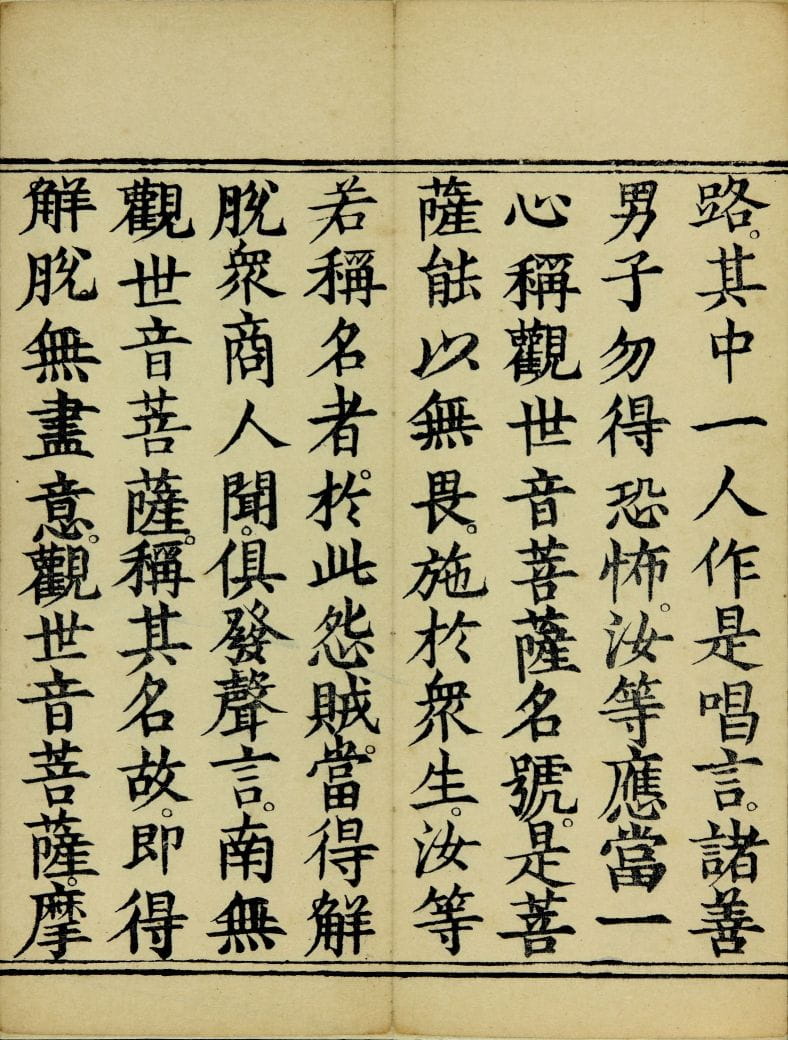 路。其中一人作是唱言。諸善
男子勿得恐怖。汝等應當一
心稱觀世音菩薩名號。是菩
薩能以無畏。施於眾生。汝等
若稱名者。於此怨賊。當得解
脫眾商人聞。俱發聲言。南無
觀世音菩薩。稱其名故。即得
解脫。無盡意。觀世音菩薩。摩